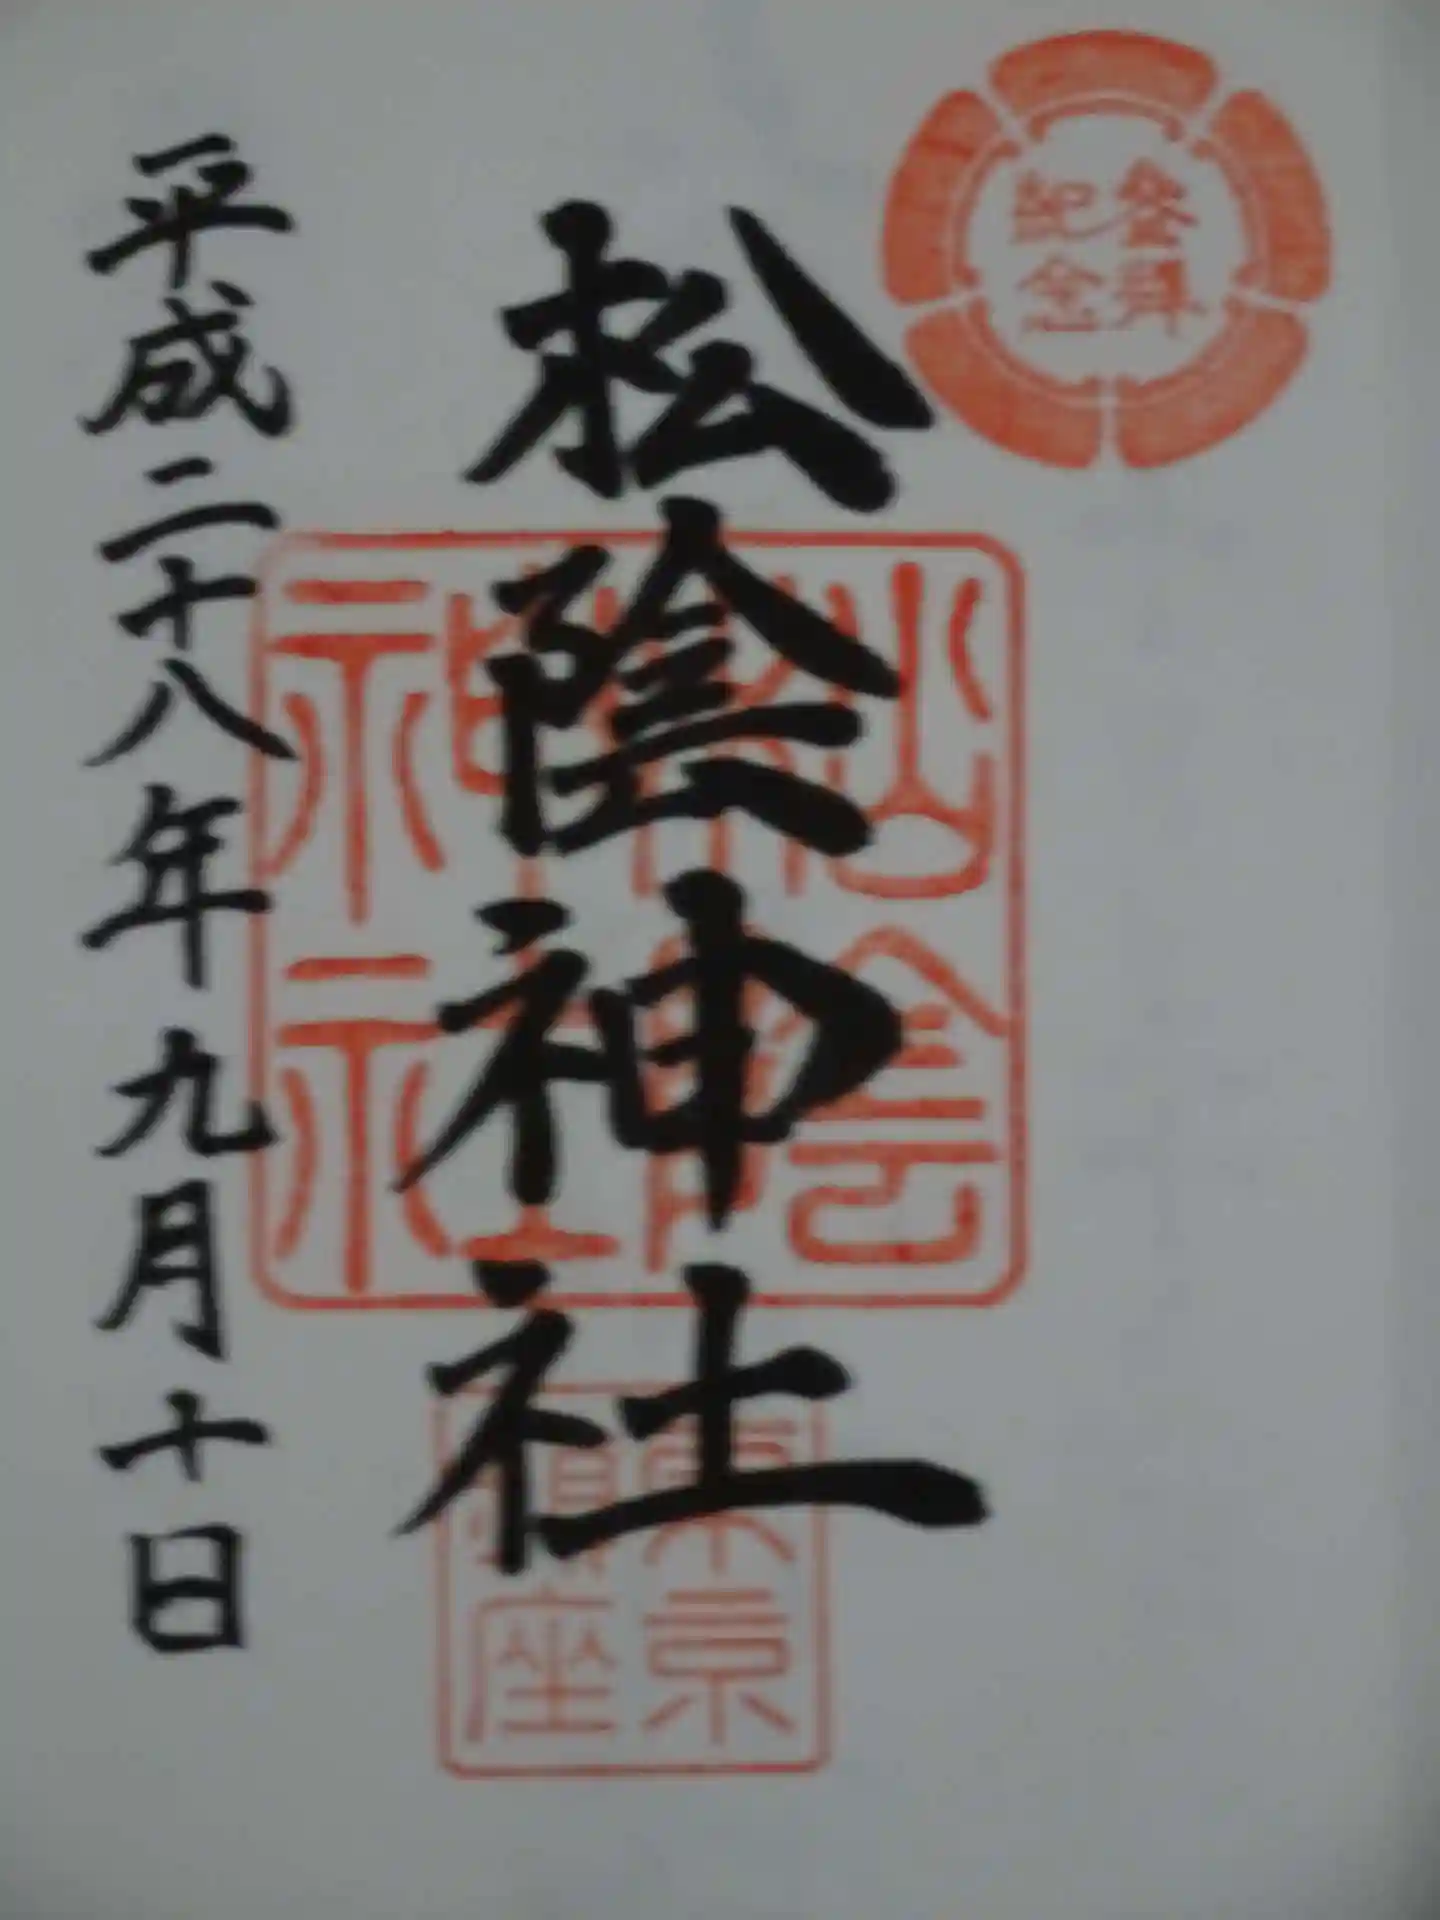 參拜
紀念
松陰神社
松陰
神社
東京
鎮座
平成二十八年九月十日